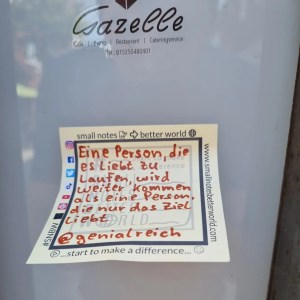 Gazelle
Restaurant | Cateringservice
small notes better world
Eine Person, die
es liebt zu
laufen, wird
weiter kommen
als eine Person,
die nur das Ziel
liebt
@genialreich
...start to make a difference...
www.smallnotesbetterworld.com